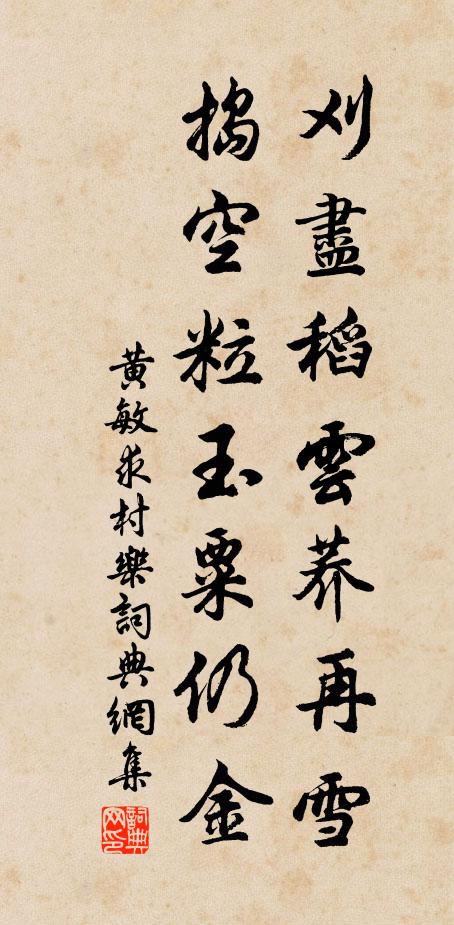 刈盡稻雲蕎再雪
搗空粒玉粟仍金
黃敏求村樂詞典網集
詞典网印